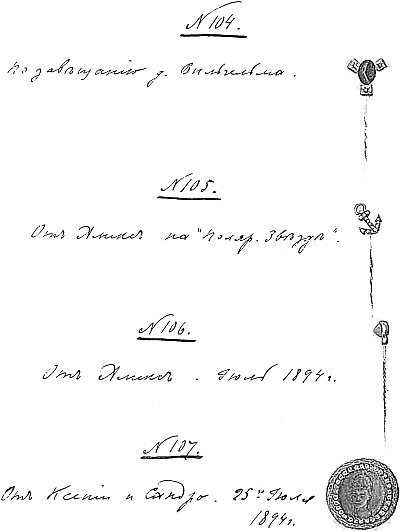 №104.
По завѣщанію д. Вильгельма.
№105.
Отъ Аликсъ на "Поляр. Звѣздѣ".
№106.
Отъ Аликсъ. Іюль 1894 г.
№107.
Отъ Ксеніи и Сандро. 25го Іюля
1894 г.